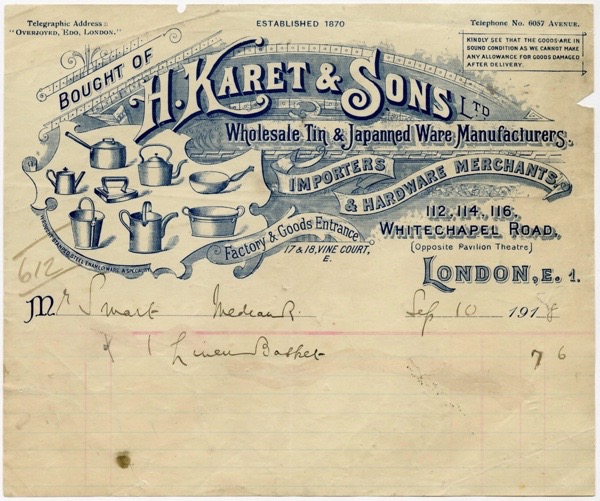 Telegraphic Address:
"Overjoyed, Edo, London."
ESTABLISHED 1870
Telephone No. 6057 Avenue.
KINDLY SEE THAT THE GOODS ARE IN
SOUND CONDITION AS WE CANNOT MAKE
ANY ALLOWANCE FOR GOODS DAMAGED
AFTER DELIVERY.
BOUGHT OF
H. KARET & SONS LTD
Wholesale Tin & Japanned Ware Manufacturers,
IMPORTERS
& HARDWARE MERCHANTS,
112, 114, 116,
WHITECHAPEL ROAD,
(Opposite Pavilion Theatre)
Factory & Goods Entrance
17 & 18, VINE COURT,
E.
LONDON, E. 1.
WROUGHT STAMPED STEEL ENAMELD WARE A SPECIALITY
612
Mr Smart Median R. Sep 10 1918
1 Linen Basket 7 6